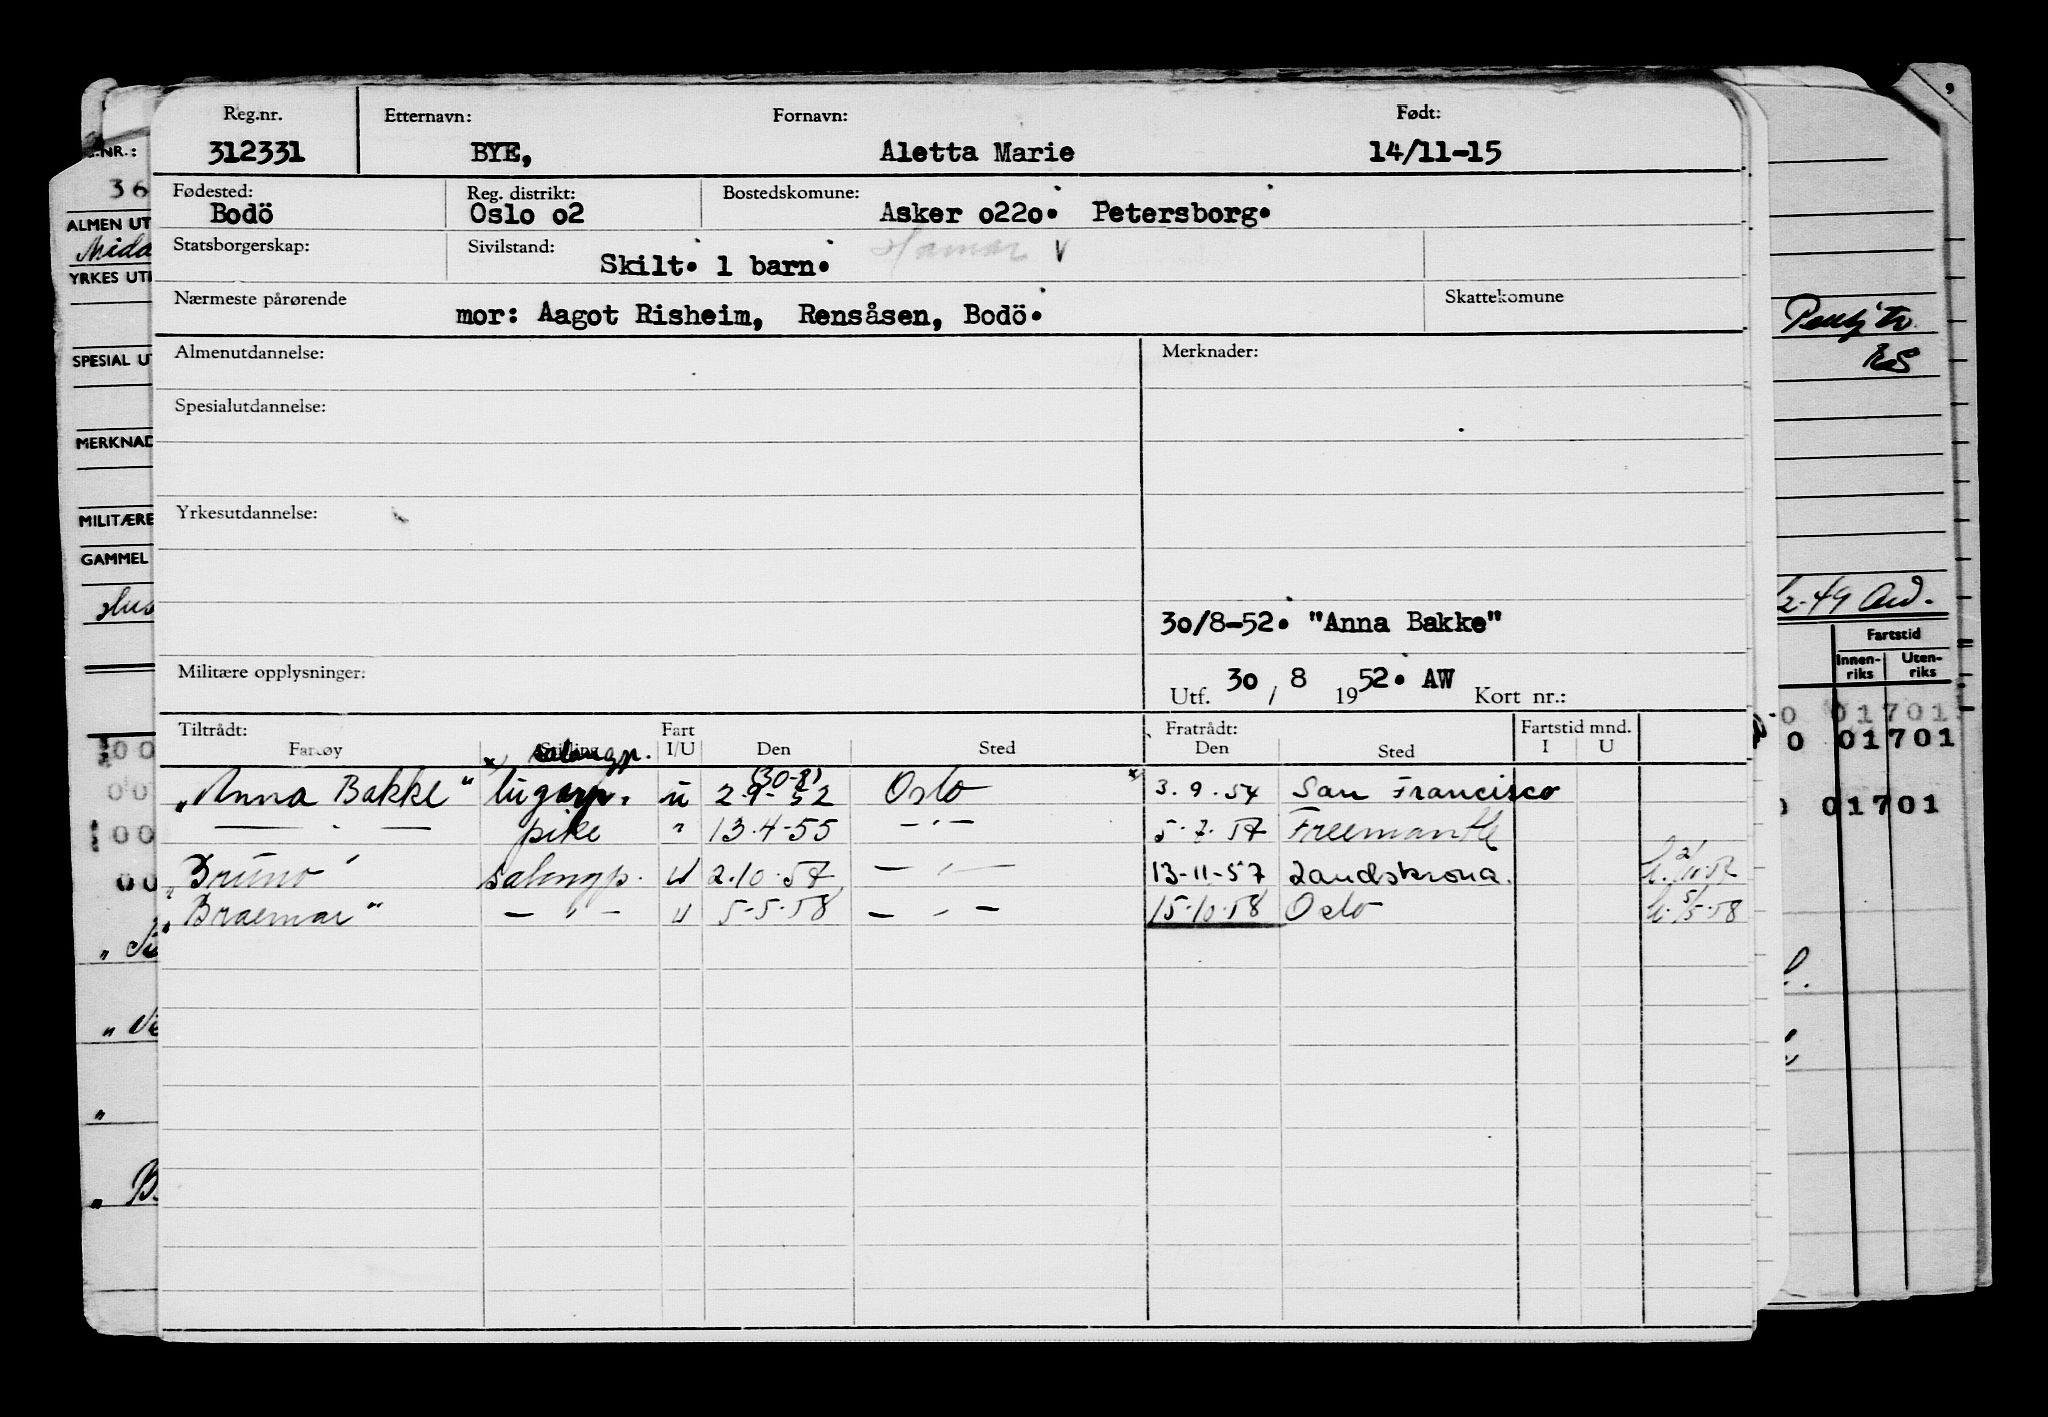 Reg.nr. Etternavn: Fornavn: Født:
312331 BYE, Aletta Marie 14/11-15
Fødested: Reg. distrikt: Bostedskomune:
Bodö Oslo o2 Asker o22o. Petersborg.
Statsborgerskap: Sivilstand: Skilt. 1 barn. Hamar V
Nærmeste pårørende mor: Aagot Risheim, Rensåsen, Bodö. Skattekomune
Almenutdannelse: Merknader:
Spesialutdannelse:
Yrkesutdannelse:
30/8-52. "Anna Bakke"
Militære opplysninger: Utf. 30 / 8 1952. AW Kort nr.:
Tiltrådt: Fart Fratrådt: Fartstid mnd.
Fartøy Stilling I/U Den Sted Den Sted I U
x) salongp.
(30-8)
"Anna Bakke" lugarp. u 2-9-52 Oslo x 3.9.54 San Francisco
— " — pike " 13.4-55 — " — 5.7.57 Freemantle
"Bruno" salongp. U 2.10.57 — " — 13-11-57 Landskrona.
"Braemar" — " — U 5-5-58 — " — 15.10.58 Oslo
.NR.:
36
ALMEN UT
YRKES UT
SPESIAL U
MERKNAD
MILITÆRE
GAMMEL
RS
-49
Fartstid
Innen-riks Uten-riks
0 01701
0 01701
01701
00
00
00
00